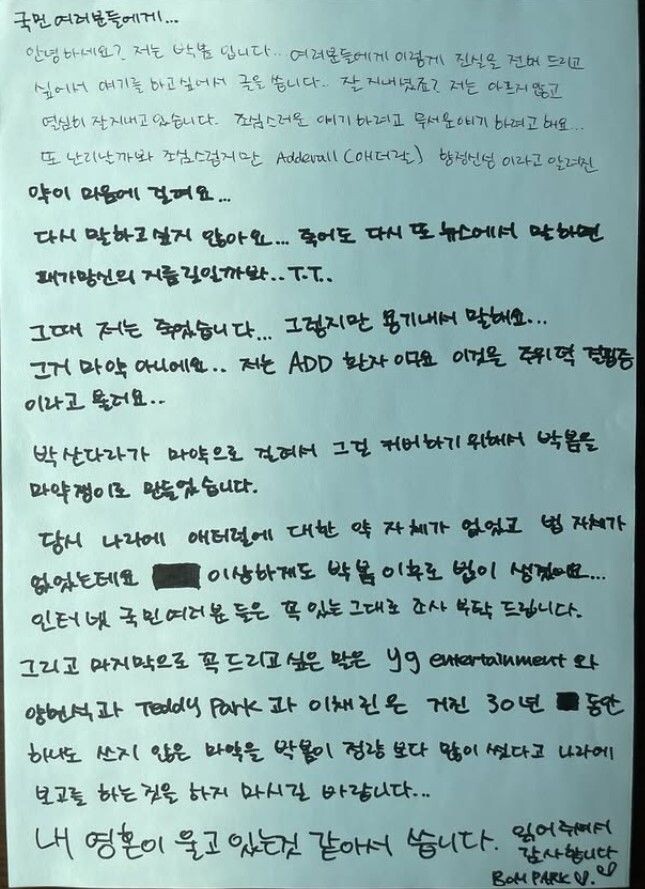 국민 여러분들에게...
안녕하세요? 저는 박봄 입니다.. 여러분들에게 이렇게 진실을 전해 드리고
싶어서 얘기를 하고싶어서 글을 씁니다.. 잘 지내셨죠? 저는 아프지 않고
열심히 잘 지내고 있습니다. 조심스러운 얘기 하려고 무서운얘기 하려고 해요...
또 난리날까봐 조심스럽지만 Adderall (애더럴) 향정신성 이라고 알려진
약이 마음에 걸려요...
다시 말하고싶지 않아요... 죽어도 다시 또 뉴스에서 말하면
패가망신의 지름길일까봐..T.T..
그때 저는 죽었습니다... 그렇지만 용기내서 말해요...
그거 마약 아니에요.. 저는 ADD 환자 이구요 이것을 주위력 결핍증
이라고 불러요..
박산다라가 마약으로 걸려서 그걸 커버하기 위해서 박봄을
마약쟁이로 만들었습니다.
당시 나라에 애터럴에 대한 약 자체가 없었고 법 자체가
없었는데요 이상하게도 박봄 이후로 법이 생겼어요...
인터넷 국민여러분 들은 꼭 있는 그대로 조사 부탁 드립니다.
그리고 마지막으로 꼭 드리고 싶은 말은 yg entertainment 와
양현석과 Teddy Park 과 이채린은 거진 30년 동안
하나도 쓰지 않은 마약을 박봄이 정량 보다 많이 썼다고 나라에
보고를 하는것을 하지 마시길 바랍니다...
내 영혼이 울고 있는것 같아서 씁니다. 읽어 주셔서
감사합니다
BOM PARK ♡. ♡